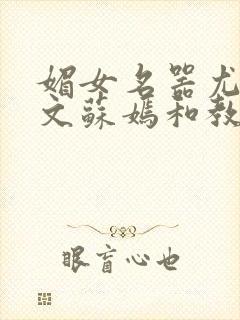 媚女名器尤
文蘇媽和教
眼盲心也